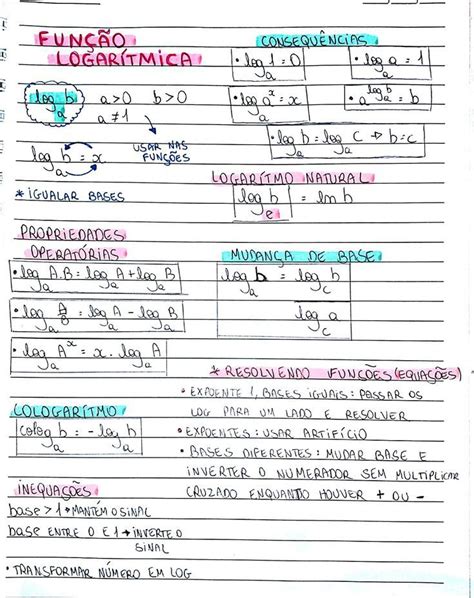 FUNÇÃO
LOGARÍTMICA
log_a b   a>0   b>0
a≠1
log_a b = x
USAR NAS
FUNÇÕES
* IGUALAR BASES
CONSEQUÊNCIAS
• log_a 1 = 0
• log_a a = 1
• log_a a^x = x
• a^(log_a b) = b
• log_a b = log_a c → b = c
LOGARÍTMO NATURAL
log_e b = ln b
PROPRIEDADES
OPERATÓRIAS
• log_a A.B = log_a A + log_a B
• log_a A/B = log_a A - log_a B
• log_a A^x = x . log_a A
MUDANÇA DE BASE
log_a b = log_c b
log_c a
COLOGARÍTMO
colog_a b = - log_a b
INEQUAÇÕES
base > 1 → MANTÉM O SINAL
base ENTRE 0 E 1 → INVERTE O
SINAL
• TRANSFORMAR NÚMERO EM LOG
* RESOLVENDO FUNÇÕES (EQUAÇÕES)
• EXPOENTE 1, BASES IGUAIS: PASSAR OS
LOG PARA UM LADO E RESOLVER
• EXPOENTES: USAR ARTIFÍCIO
• BASES DIFERENTES: MUDAR BASE E
INVERTER O NUMERADOR SEM MULTIPLICAR
CRUZADO ENQUANTO HOUVER + OU -